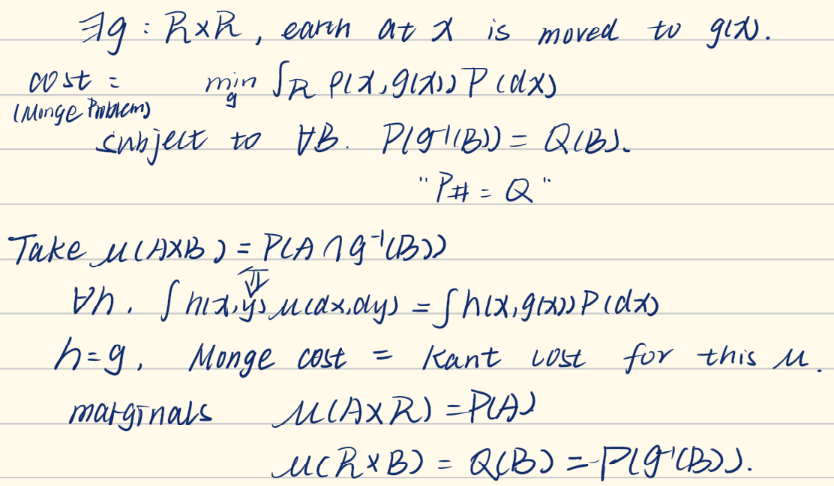 ∃g : R×R, earth at x is moved to g(x).
cost = min_g ∫_R ρ(x,g(x)) P(dx)
(Monge Problem)
subject to ∀B. P(g⁻¹(B)) = Q(B).
"P# = Q"
Take μ(A×B) = P(A∩g⁻¹(B))
⇕
∀h. ∫h(x,y) μ(dx,dy) = ∫h(x,g(x)) P(dx)
h=g, Monge cost = Kant cost for this μ.
marginals μ(A×R) = P(A)
μ(R×B) = Q(B) = P(g⁻¹(B)).